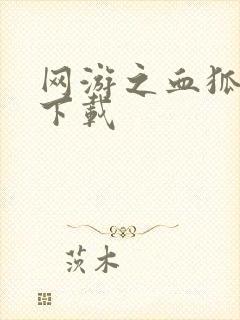 网游之血狐
下载
茨木